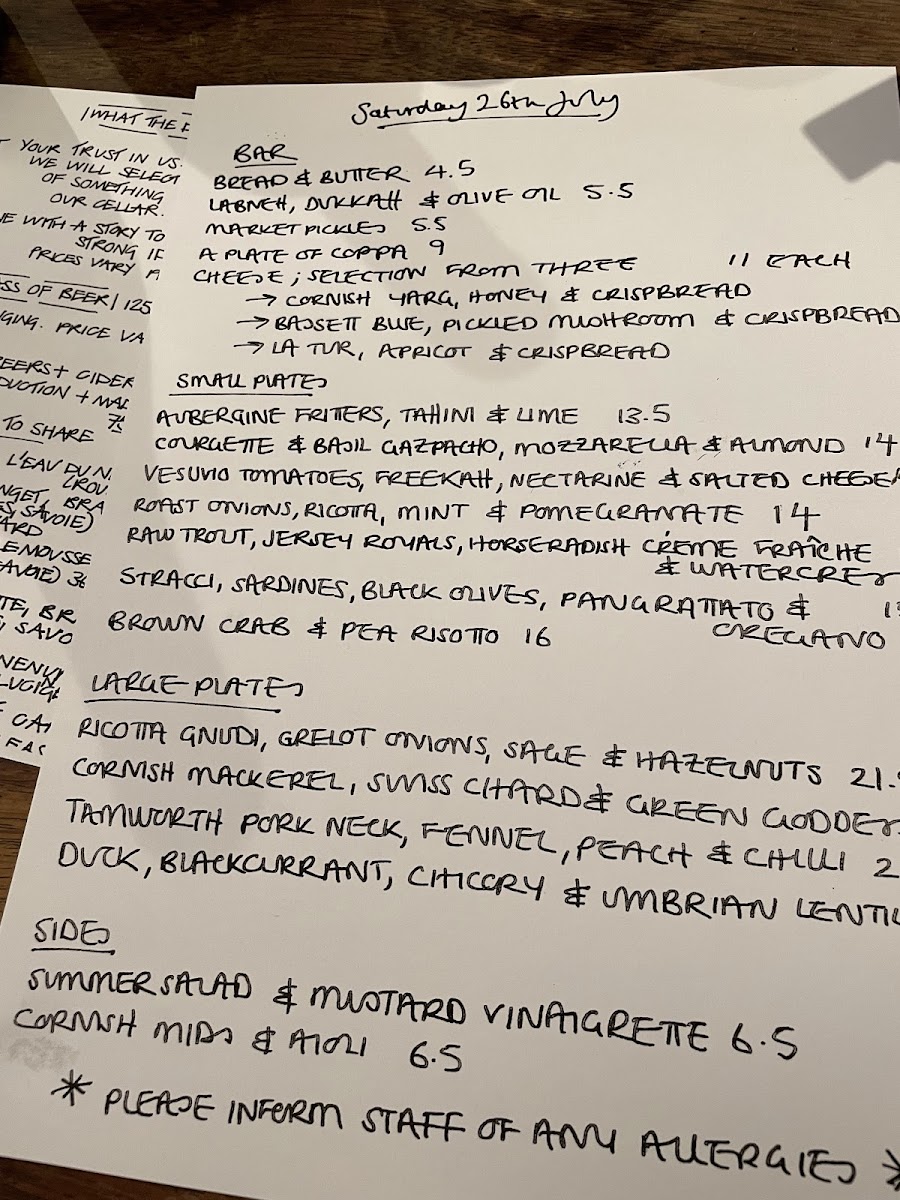 WHAT THE
YOUR TRUST IN US.
WE WILL SELECT
OF SOMETHING
OUR CELLAR.
WITH A STORY TO
STRONG
PRICES VARY
OF BEER / 125
PRICE
CIDER
TO SHARE
L'EAU
SAVOIE)
Saturday 26th July
BAR
BREAD & BUTTER 4.5
LABNEH, DUKKAH & OLIVE OIL 5.5
MARKET PICKLES 5.5
A PLATE OF COPPA 9
CHEESE; SELECTION FROM THREE 11 EACH
→ CORNISH YARG, HONEY & CRISPBREAD
→ BASSETT BLUE, PICKLED MUSHROOM & CRISPBREAD
→ LA TUR, APRICOT & CRISPBREAD
SMALL PLATES
AUBERGINE FRITTERS, TAHINI & LIME 13.5
COURGETTE & BASIL GAZPACHO, MOZZARELLA & ALMOND 14
VESUVIO TOMATOES, FREEKAH, NECTARINE & SALTED CHEESE
ROAST ONIONS, RICOTTA, MINT & POMEGRANATE 14
RAW TROUT, JERSEY ROYALS, HORSERADISH CRÈME FRAÎCHE
& WATERCRES
STRACCI, SARDINES, BLACK OLIVES, PANGRATTATO &
OREGANO
BROWN CRAB & PEA RISOTTO 16
LARGE PLATES
RICOTTA GNUDI, GRELOT ONIONS, SAGE & HAZELNUTS 21.
CORNISH MACKEREL, SWISS CHARD & GREEN GODDES
TAMWORTH PORK NECK, FENNEL, PEACH & CHILLI 2
DUCK, BLACKCURRANT, CHICORY & UMBRIAN LENTIL
SIDES
SUMMER SALAD & MUSTARD VINAIGRETTE 6.5
CORNISH MIDS & AIOLI 6.5
* PLEASE INFORM STAFF OF ANY ALLERGIES *